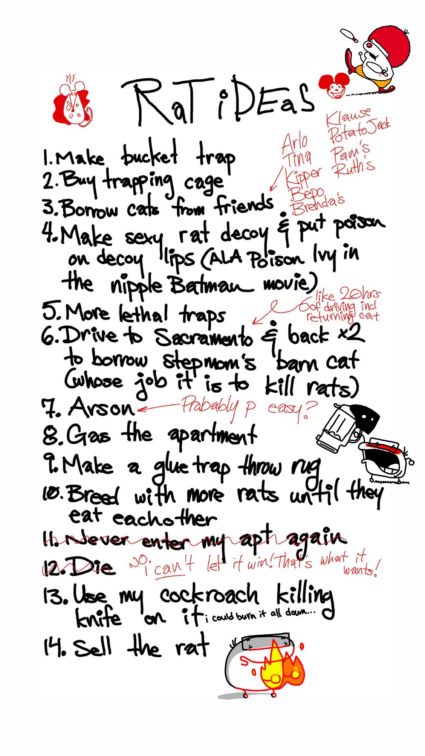 RaT iDEaS
Klause
Potato Jack
Pam's
Ruth's
Arlo
Tina
Kipper
Bepo
Brenda's
1. Make bucket trap
2. Buy trapping cage
3. Borrow cats from friends
4. Make sexy rat decoy & put poison
on decoy lips (ALA Poison Ivy in
the nipple Batman movie)
5. More lethal traps
like 20hrs
of driving incl
returning cat
6. Drive to Sacramento & back x2
to borrow stepmom's barn cat
(whose job it is to kill rats)
7. Arson
Probably p easy?
8. Gas the apartment
9. Make a glue trap throw rug
10. Breed with more rats until they
eat eachother
11. Never enter my apt again
12. Die
NO i can't let it win! That's what it
wants!
13. Use my cockroach killing
knife on it
i could burn it all down...
14. Sell the rat